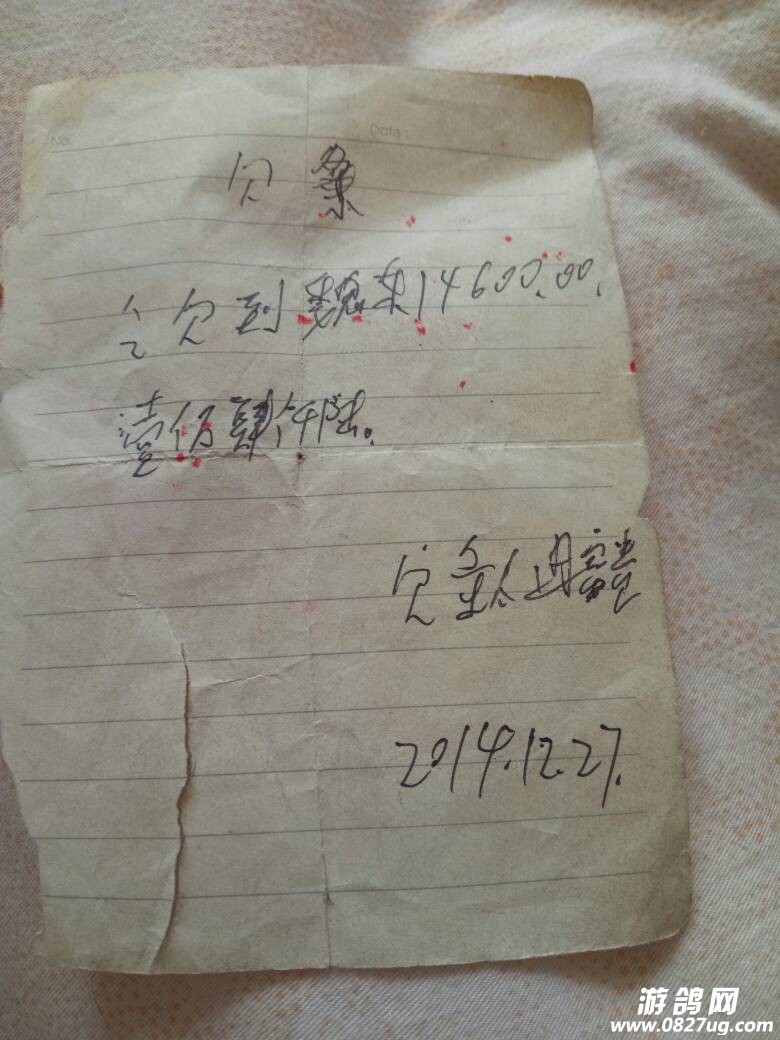 No.
Date:
欠条
今欠到魏来14600.00.
壹佰肆仟陆。
欠款人
2014.12.27.
游鸽网
www.0827ug.com